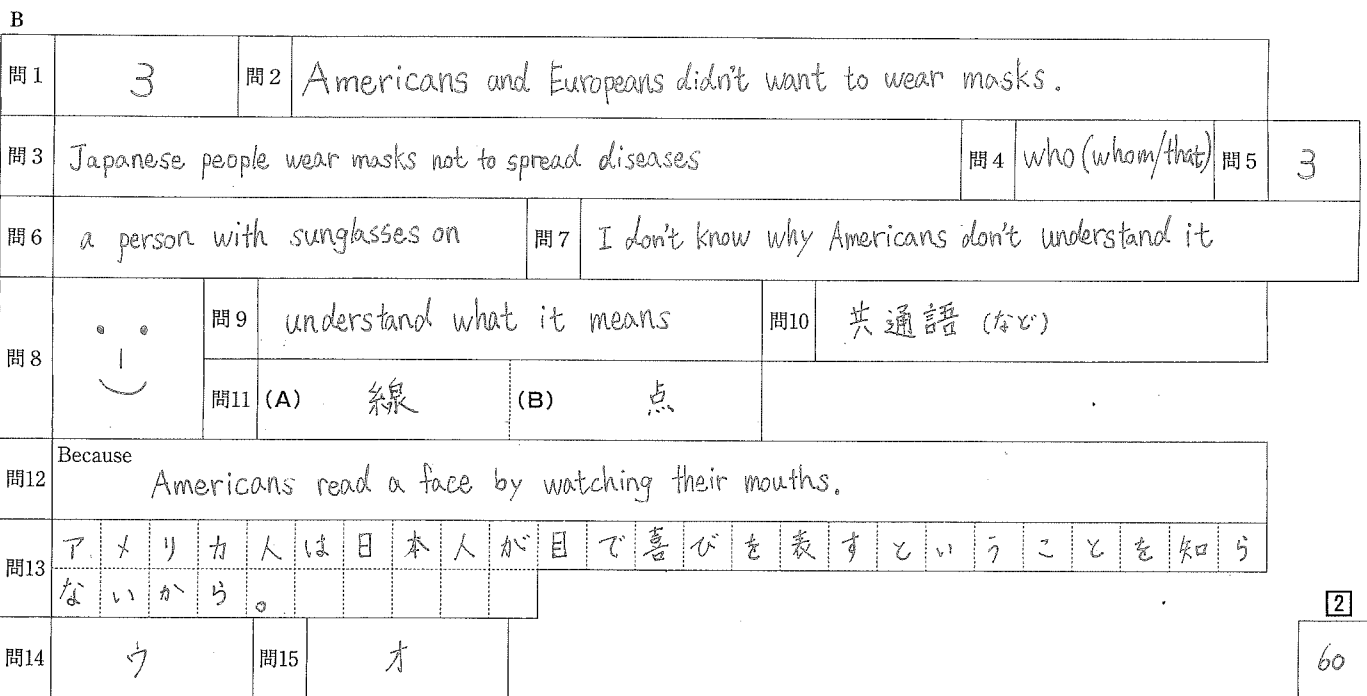 B
問1 3 問2 Americans and Europeans didn't want to wear masks.
問3 Japanese people wear masks not to spread diseases 問4 who (whom/that) 問5 3
問6 a person with sunglasses on 問7 I don't know why Americans don't understand it
問8
問9 understand what it means 問10 共通語 (など)
問11 (A) 線 (B) 点
問12 Because
Americans read a face by watching their mouths.
問13 アメリカ人は日本人が目で喜びを表すということを知ら
ないから。
2
問14 ウ 問15 オ
60